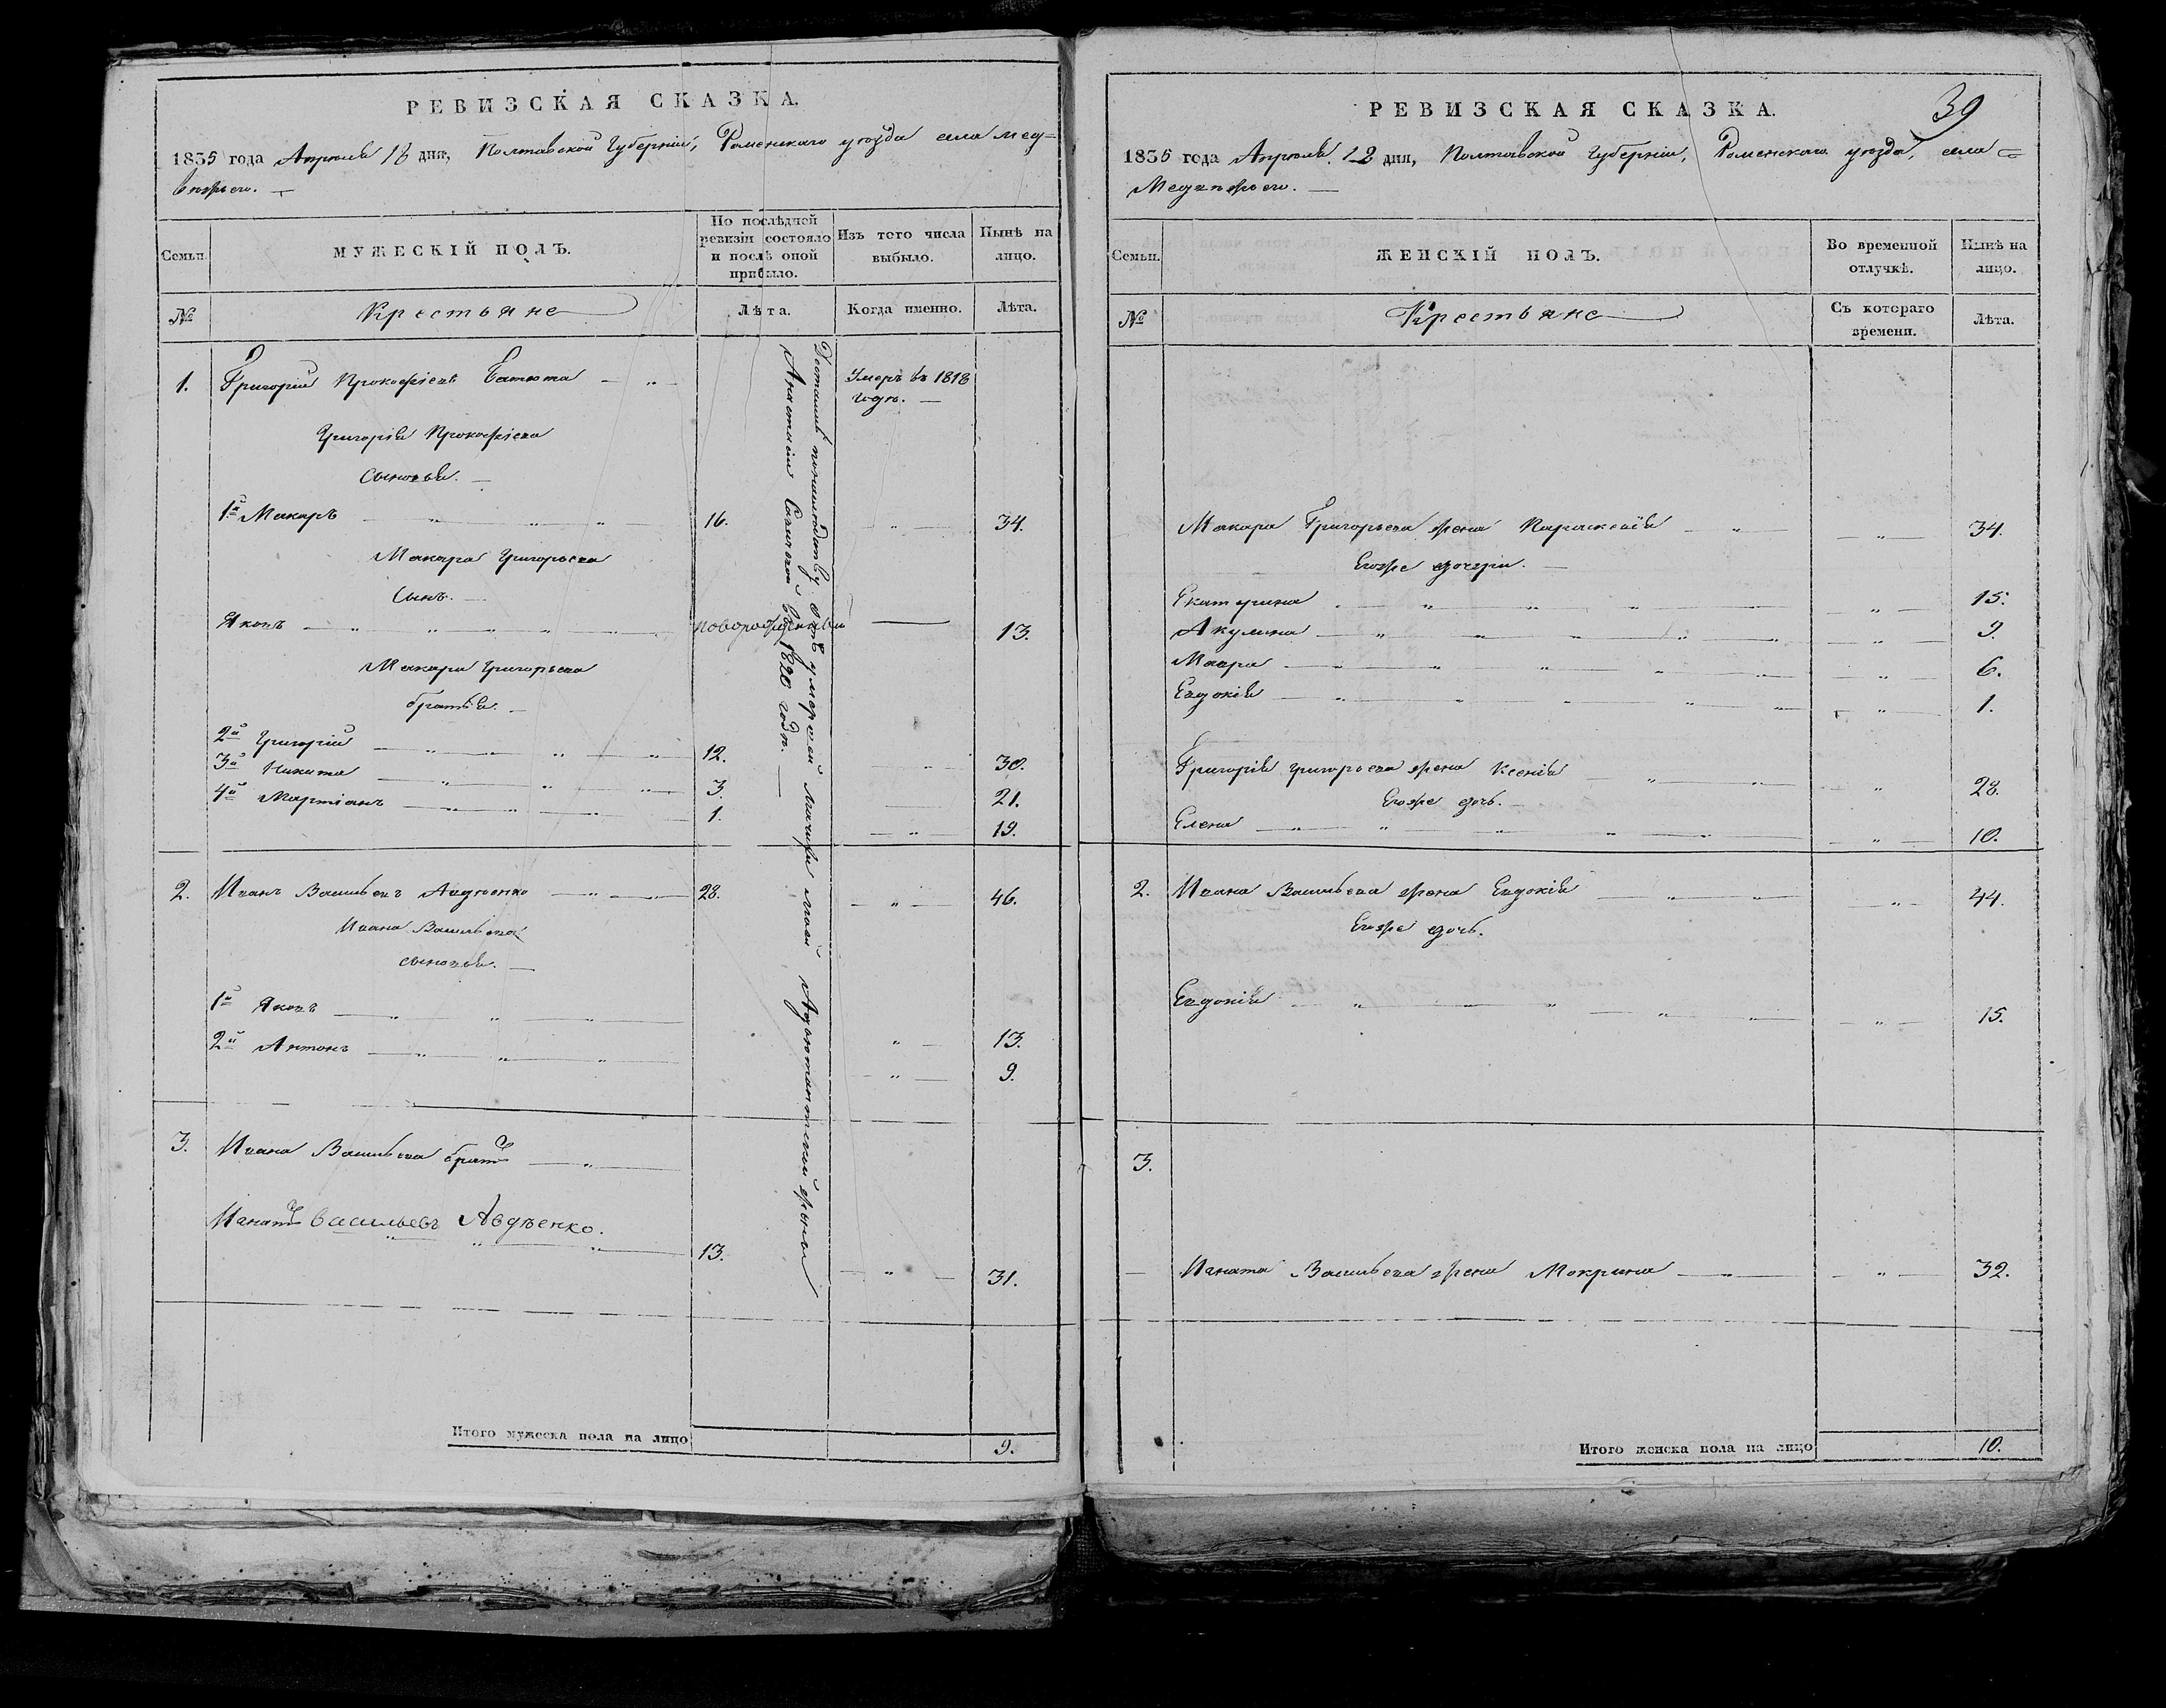 РЕВИЗСКАЯ СКАЗКА.
1835 года Апреля 18 дня, Полтавской Губернiи, Роменскаго уезда села Мед-
вежьего.
Семьи.
МУЖЕСКІЙ ПОЛЪ.
По послѣдней ревизіи состояло и послѣ оной прибыло.
Изъ того числа выбыло.
Нынѣ на лицо.
№
Крестьяне
Лѣта.
Когда именно.
Лѣта.
1. Григорій Прокофіевъ Батюта — „ — Умеръ въ 1818
годѣ. —
Григорія Прокофіева
Сыновья. —
1й Макаръ 16. — „ — 34.
Макара Григорьева
Сынъ. —
Яковъ новорожденный — 13.
Макара Григорьева
братья. —
2й Григорій 12. — „ — 30.
3й Никита 3. 21.
4й Мартіанъ 1. — „ — 19.
2. Иванъ Васильевъ Авдѣенко 28. — „ — 46.
Ивана Васильева
сыновья. —
1й Яковъ „ — 13.
2й Антонъ — „ — 9.
3. Ивана Васильева братъ — „
Игнатъ Васильевъ Авдѣенко.
13. — „ — 31.
Достались по наследству отъ умершей матери моей Адъютантской жены
Анастасіи 1820 годѣ. —
Итого мужеска пола на лицо 9.
39
РЕВИЗСКАЯ СКАЗКА.
1835 года Апреля 12 дня, Полтавской Губерніи, Роменскаго уезда, села
Медвежьего. —
Семьи.
ЖЕНСКІЙ ПОЛЪ.
Во временной отлучкѣ.
Нынѣ на лицо.
№
Крестьяне
Съ котораго времени.
Лѣта.
Макара Григорьева жена Параскевія — „ — 34.
Егоже дочери. —
Екатерина — „ — 15.
Акулина — „ — 9.
Мавра — „ — 6.
Евдокія „ 1.
Григорія Григорьева жена Ксенія „ 28.
Егоже дочь. —
Елена — „ — 10.
2. Ивана Васильева жена Евдокія — „ — 44.
Егоже дочь.
Евдокія — „ — 15.
3.
Игната Васильева жена Мокрина — „ — 32.
Итого женска пола на лицо 10.